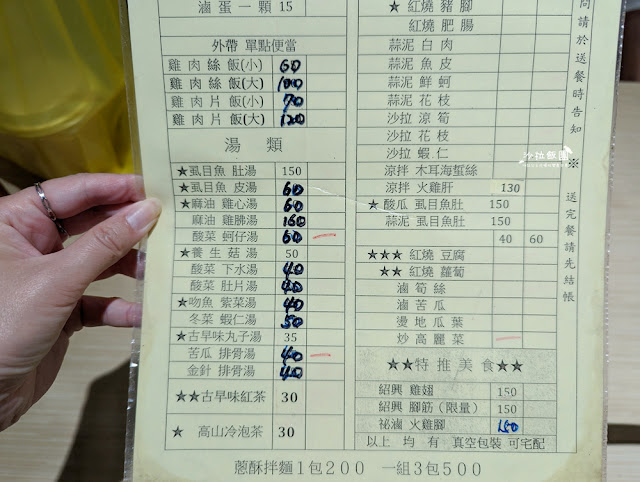 滷蛋一顆 15
外帶 單點便當
雞肉絲飯(小) 60
雞肉絲飯(大) 100
雞肉片飯(小) 70
雞肉片飯(大) 120
湯類
★虱目魚 肚湯 150
★虱目魚 皮湯 60
★麻油 雞心湯 60
麻油 雞腸湯 160
酸菜 蚵仔湯 60
★養生菇湯 50
酸菜 下水湯 40
酸菜 肚片湯 40
★吻魚 紫菜湯 40
冬菜 蝦仁湯 50
★古早味丸子湯 35
苦瓜 排骨湯 40
金針 排骨湯 40
★★古早味紅茶 30
★ 高山冷泡茶 30
★紅燒豬腳
紅燒肥腸
蒜泥白肉
蒜泥魚皮
蒜泥鮮蚵
蒜泥花枝
沙拉涼筍
沙拉花枝
沙拉蝦仁
涼拌 木耳海蜇絲
涼拌 火雞肝 130
★酸瓜 虱目魚肚 150
蒜泥 虱目魚肚 150
40 60
★★★ 紅燒 豆腐
★★ 紅燒 蘿蔔
滷筍絲
滷苦瓜
燙地瓜葉
炒高麗菜
★★特推美食★★
紹興 雞翅 150
紹興 腳筋（限量） 150
祕滷 火雞腳 150
以上 均有 真空包裝 可宅配
問請於送餐時告知 ※ 送完餐請先結帳
蔥酥拌麵1包200 一組3包500